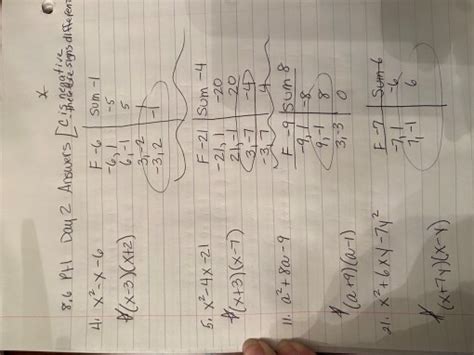 x
8.6 Pt1 Day 2 Answers [C is negative
therefore signs different
4. x²-x-6
(x-3)(x+2)
F-6 Sum -1
-6, 1 -5
6, -1 5
3, -2 1
-3, 2 -1
5. x²-4x-21
(x+3)(x-7)
F-21 Sum -4
-21, 1 -20
21, -1 20
3, -7 -4
-3, 7 4
11. a²+8a-9
(a+9)(a-1)
F-9 Sum 8
-9, 1 -8
9, -1 8
3, -3 0
21. x²+6xy-7y²
(x+7y)(x-y)
F-7 Sum 6
-7, 1 -6
7, -1 6